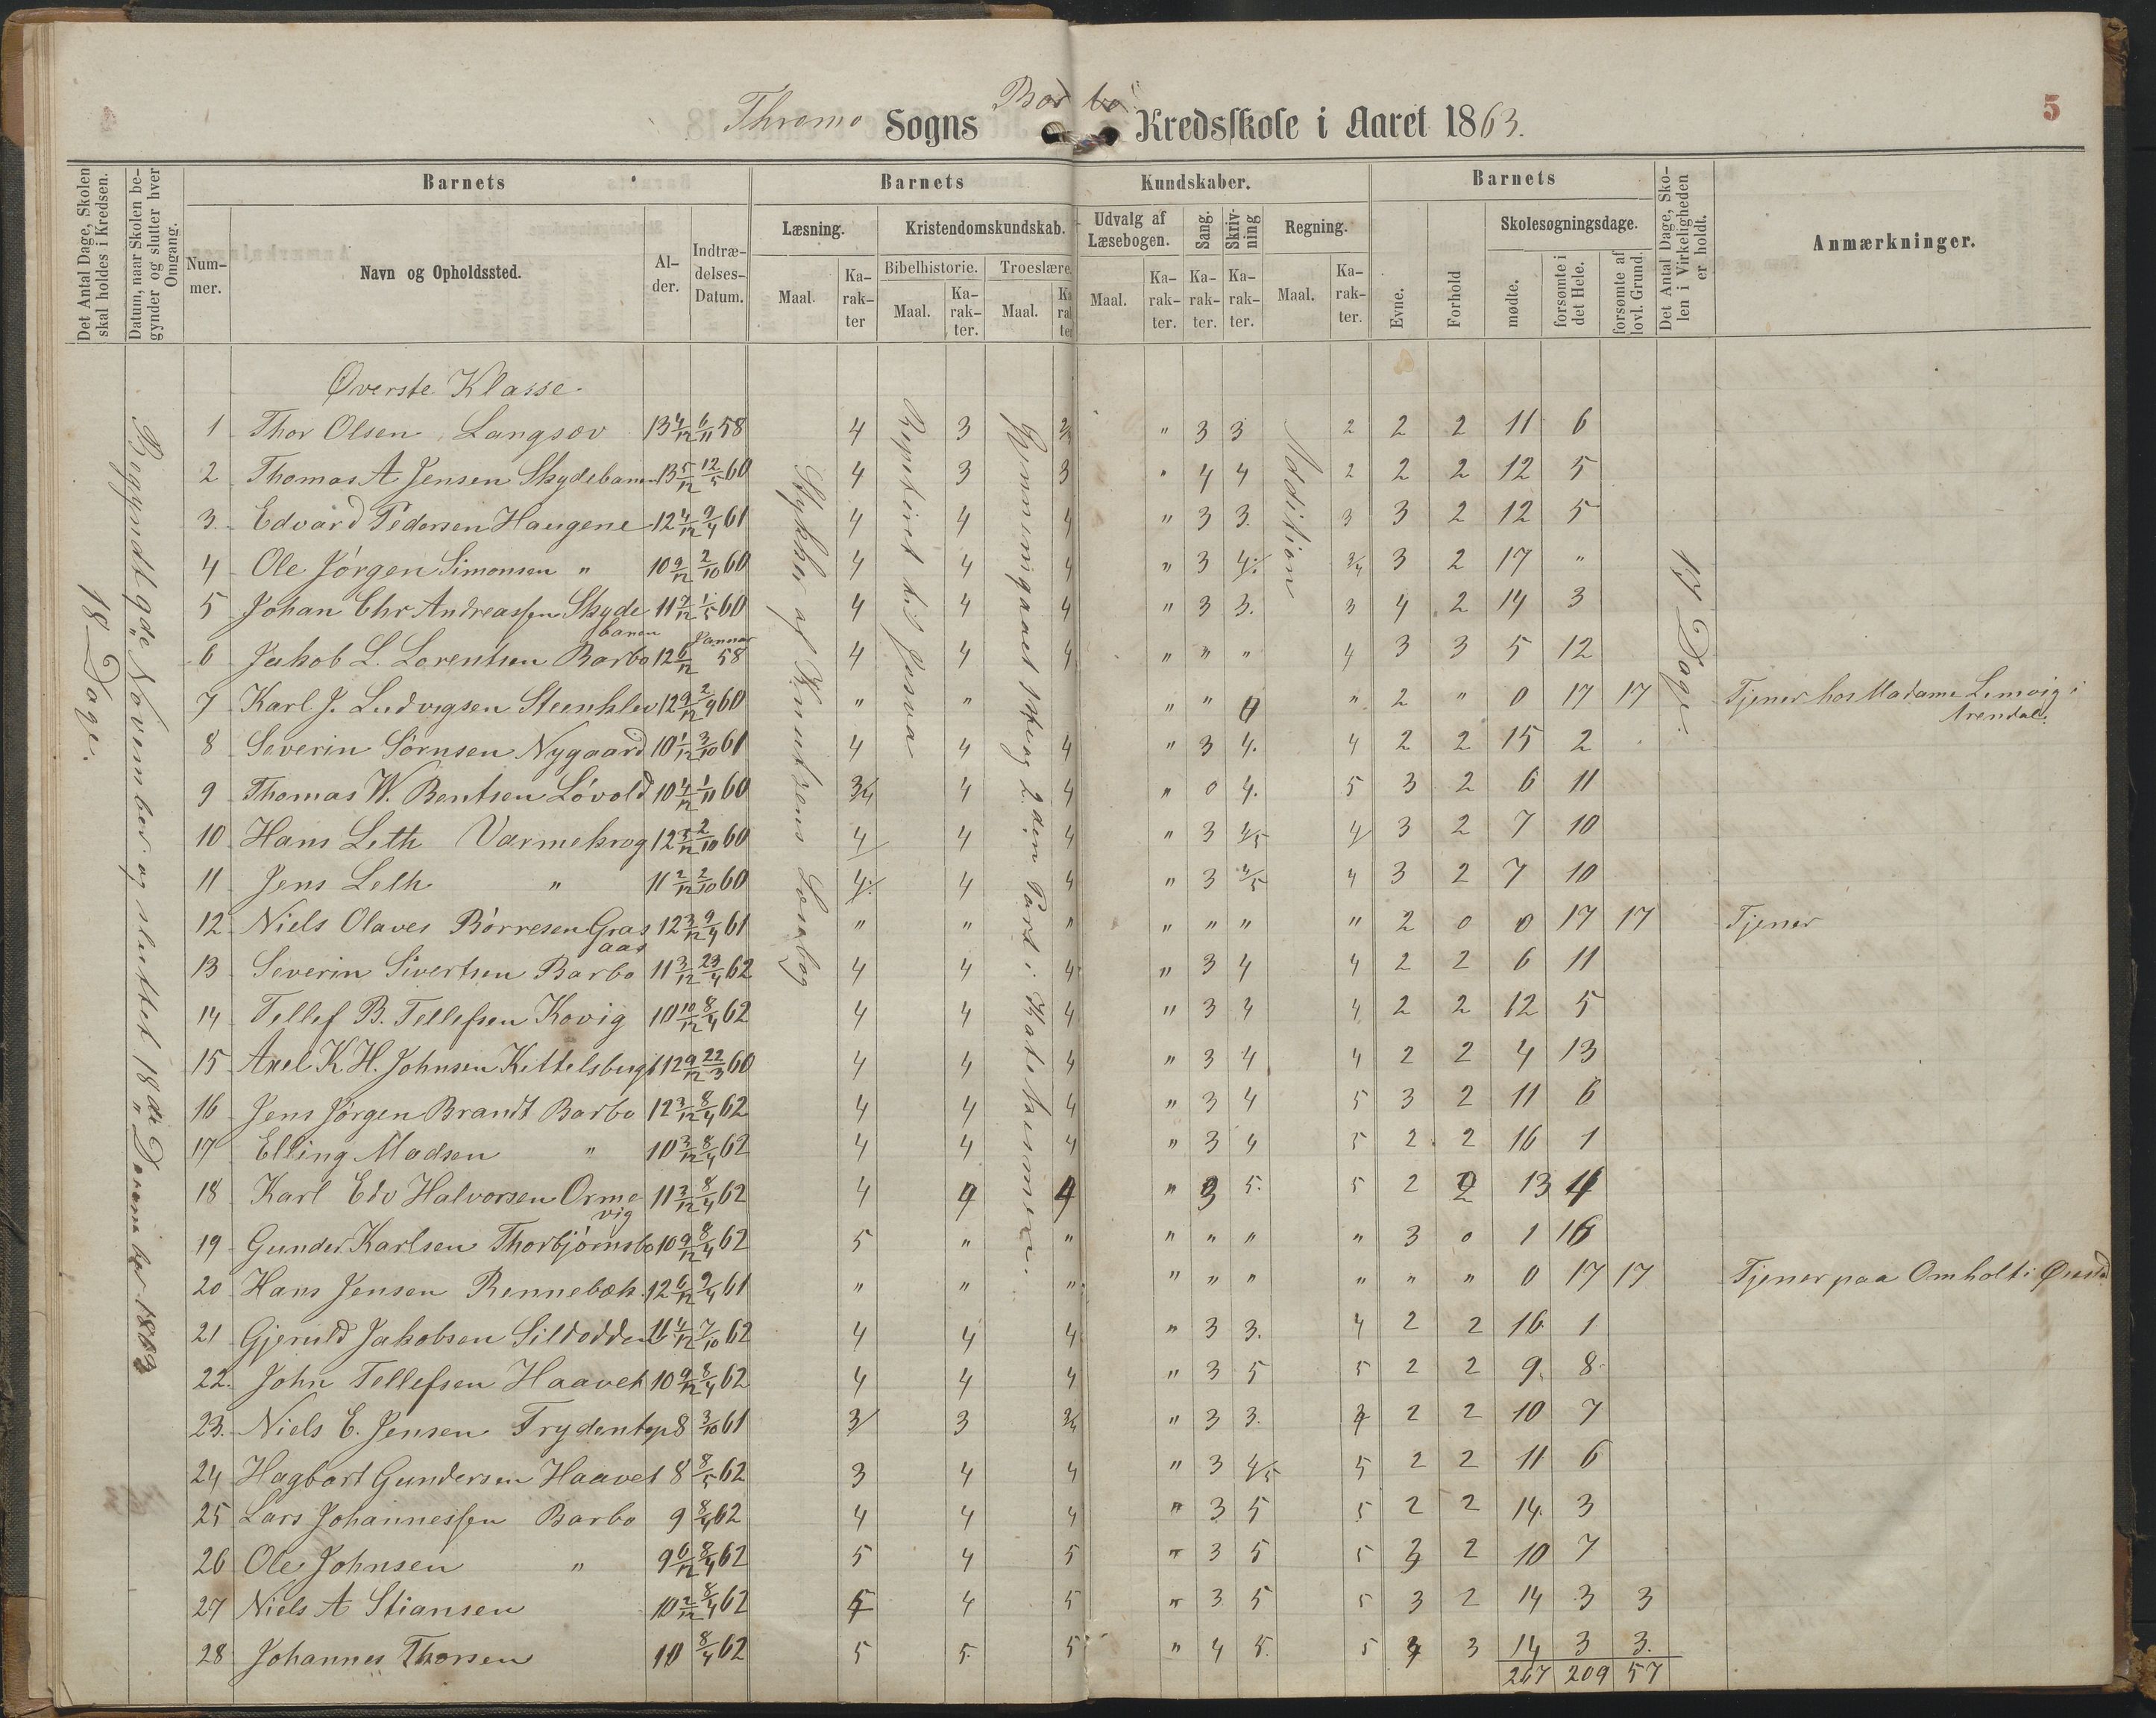 Thromo Sogns Barbo Kredsskole i Aaret 1863. 5
Det Antal Dage, Skolen skal holdes i Kredsen.
Datum, naar Skolen begynder og slutter hver Omgang.
Barnets Barnets Kundskaber. Barnets
Det Antal Dage, Skolen i Virkeligheden er holdt.
Anmærkninger.
Nummer. Navn og Opholdssted. Alder. Indtrædelses-Datum.
Læsning. Kristendomskundskab. Udvalg af Læsebogen. Sang. Skrivning Regning. Evne. Forhold Skolesøgningsdage.
Bibelhistorie. Troeslære.
Maal. Karakter Maal. Karakter. Maal. Karakter Maal. Karakter. Karakter. Karakter. Maal. Karakter. mødte. forsømte i det Hele. forsømte af lovl. Grund.
18 Dage.
Begyndt 9de November og sluttet 18de December 1863
Stykker af Knudsens Læsebog
Repetiret til Josva
Gjennemgaaet 1ste og 2den Part i Katekismen.
Addition
17 Dage.
Øverste Klasse.
1 Thor Olsen, Langsæv 13 4/12 6/11 58 4 3 2/3 " 3 3 2 2 2 11 6
2 Thomas A Jensen Skydebanen 13 5/12 12/5 60 4 3 3 " 4 4 2 2 2 12 5
3. Edvard Pedersen Haugene 12 4/12 9/4 61 4 4 4 " 3 3. 3 3 2 12 5
4 Ole Jørgen Simonsen " 10 9/12 2/10 60 4 4 4 " 3 4/. 3/4 3 2 17 "
5 Johan Chr Andreassen Skydebanen 11 7/12 1/5 60 4 4 4 " 3 3. 3 4 2 14 3
6 Jakob L. Lorentsen Barbo 12 6/12 Januar 58 4 4 4 " " " 4 3 3 5 12
7 Karl J. Ludvigsen Steenklev 12 9/12 2/9 60 " " " " 0 " 2 " 0 17 17 Tjener hos Madame Lemvig i Arendal.
8 Severin Sørnsen Nygaard 10 1/12 3/10 61 4 4 4 " 3 4. 4 2 2 15 2
9 Thomas W. Bentsen Løvold 10 4/12 1/11 60 3/4 4 4 " 0 4. 5 3 2 6 11
10 Hans Leth Varmekrog 12 3/12 2/10 60 4/ 4 4 " 3 4/5 4/ 3 2 7 10
11 Jens Leth " 11 2/12 2/10 60 4/. 4 4 " 3 4/5 4 3 2 7 10
12 Niels Olaves Børresen Grasaas 12 3/12 9/4 61 " " " " " " " 2 0 0 17 17 Tjener
13 Severin Sivertsen Barbo 11 3/12 23/4 62 4 4 4 " 3 4 4 2 2 6 11
14 Tellef B. Tellefsen Kovig 10 10/12 8/4 62 4 4 4 " 3 4 4 2 2 12 5
15 Axel K H. Johnsen Kittelsbugt 12 9/12 22/3 60 4 4 4 " 3 4 4 2 2 4 13
16 Jens Jørgen Brandt Barbo 12 3/12 8/4 62 4 4 4 " 3 4 5 3 2 11 6
17 Elling Madsen " 10 3/12 8/4 62 4 4 4 " 3 4 5 2. 2 16 1
18 Karl Edv Halvorsen Ormevig 11 3/12 8/4 62 4 4 4 " 3 5. 5 2 2 13 4
19 Gunder Karlsen Thorbjørnsbo 10 9/12 8/4 62 5 " " " " " " 3 0 1 16
20 Hans Jensen Rennebæk. 12 6/12 9/4 61 " " " " " " " " " 0 17 17 Tjener paa Omholt i Øiestd
21 Gjeruld Jakobsen Sildodden 11 4/12 7/10 62 4 4 4 " 3 3. 4 2 2 16 1
22. John Tellefsen Haavet 10 9/12 8/4 62 4 4 4 " 3 5 5 2 2 9. 8.
23. Niels E. Jensen Frydentop 8 3/10 61 3/ 3 3/4 " 3 3. 2 2 10 7
24 Hagbart Gundersen Haavet 8 8/5 62 3 4 4 " 3 4/5 5 2 2 11 6
25 Lars Johannessen Barbo 9 8/4 62 4 4 4 " 3 5 5 2 2 14. 3
26 Ole Johnsen " 9 6/12 8/4 62 5 4 5 " 3 5 5 3 2 10 7
27 Niels A Stiansen 10 2/12 8/4 62 5 4 5 " 3 5 5 3 2 14 3 3
28 Johannes Thorsen 10 8/4 62 5 5. 5 " 4 5. 5 3 14 3 3.
267 209 57